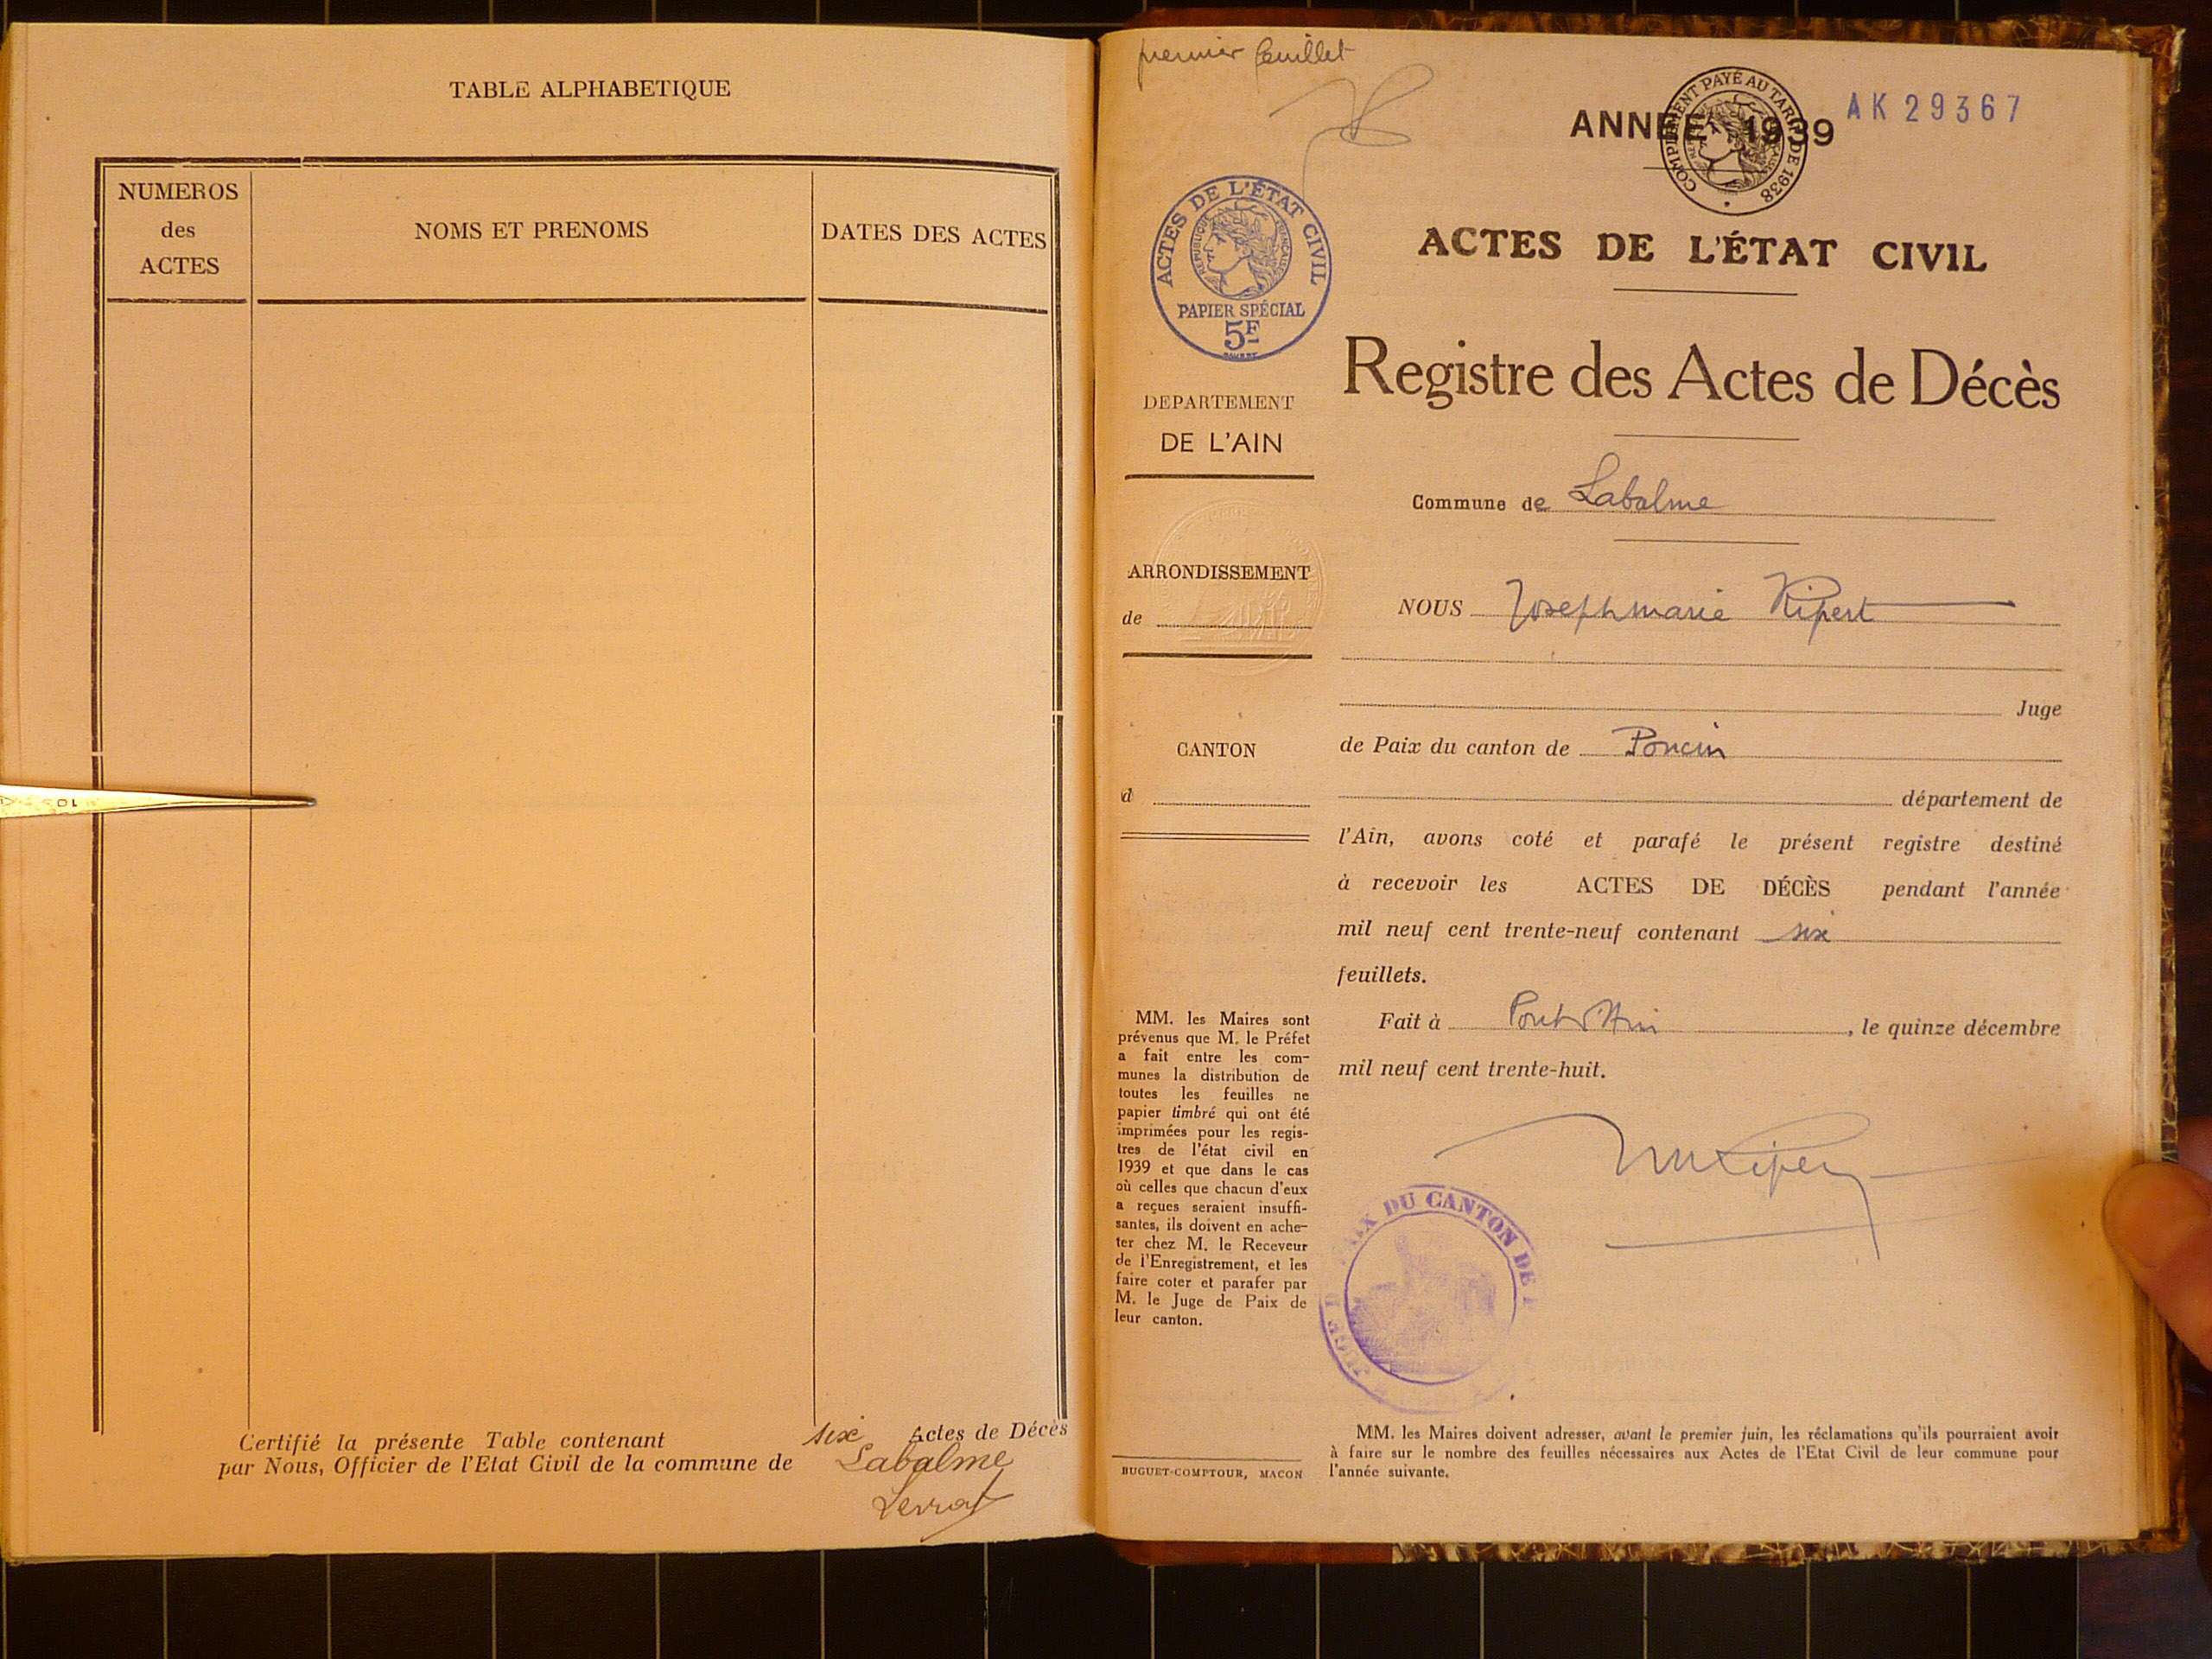 TABLE ALPHABETIQUE
NUMEROS
des
ACTES
NOMS ET PRENOMS
DATES DES ACTES
Certifié la présente Table contenant six Actes de Décès
par Nous, Officier de l'Etat Civil de la commune de Labalme
premier feuillet
ANNEE 1939
AK 29367
COMPLEMENT PAYÉ AU TARIF DE 1938
ACTES DE L'ÉTAT CIVIL
REPUBLIQUE FRANÇAISE
PAPIER SPÉCIAL
5F
DEPARTEMENT
DE L'AIN
ARRONDISSEMENT
de
CANTON
d
MM. les Maires sont
prévenus que M. le Préfet
a fait entre les com-
munes la distribution de
toutes les feuilles ne
papier timbré qui ont été
imprimées pour les regis-
tres de l'état civil en
1939 et que dans le cas
où celles que chacun d'eux
a reçues seraient insuffi-
santes, ils doivent en ache-
ter chez M. le Receveur
de l'Enregistrement, et les
faire coter et parafer par
M. le Juge de Paix de
leur canton.
BUGUET-COMPTOUR, MACON
ACTES DE L'ÉTAT CIVIL
Registre des Actes de Décès
Commune de Labalme
NOUS Joseph marie Ripert
Juge
de Paix du canton de Poncin
département de
l'Ain, avons coté et parafé le présent registre destiné
à recevoir les ACTES DE DÉCÈS pendant l'année
mil neuf cent trente-neuf contenant six
feuillets.
Fait à Pont d'Ain, le quinze décembre
mil neuf cent trente-huit.
AIX DU CANTON DE
MM. les Maires doivent adresser, avant le premier juin, les réclamations qu'ils pourraient avoir
à faire sur le nombre des feuilles nécessaires aux Actes de l'Etat Civil de leur commune pour
l'année suivante.